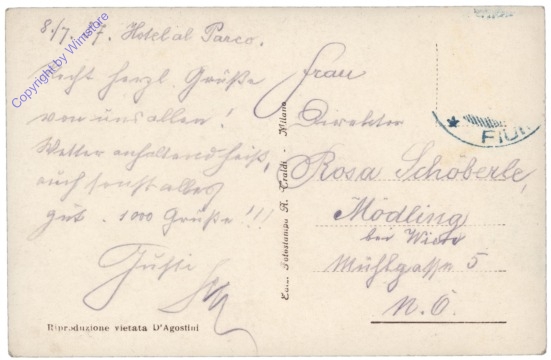 8./7. 7. Hotel al Parco.
Recht herzl. Grüße
von uns allen!
Wetter anhaltend heiß,
auch sonst alles
gut. 1000 Grüße!!!
Gusti
Frau
Direktor
Rosa Schoberle,
Mödling
bei Wien
Mühlgasse 5
N. Ö.
Fotostampa A. Traldi - Milano
Riproduzione vietata D'Agostini
FIU
Copyright by Wimstore